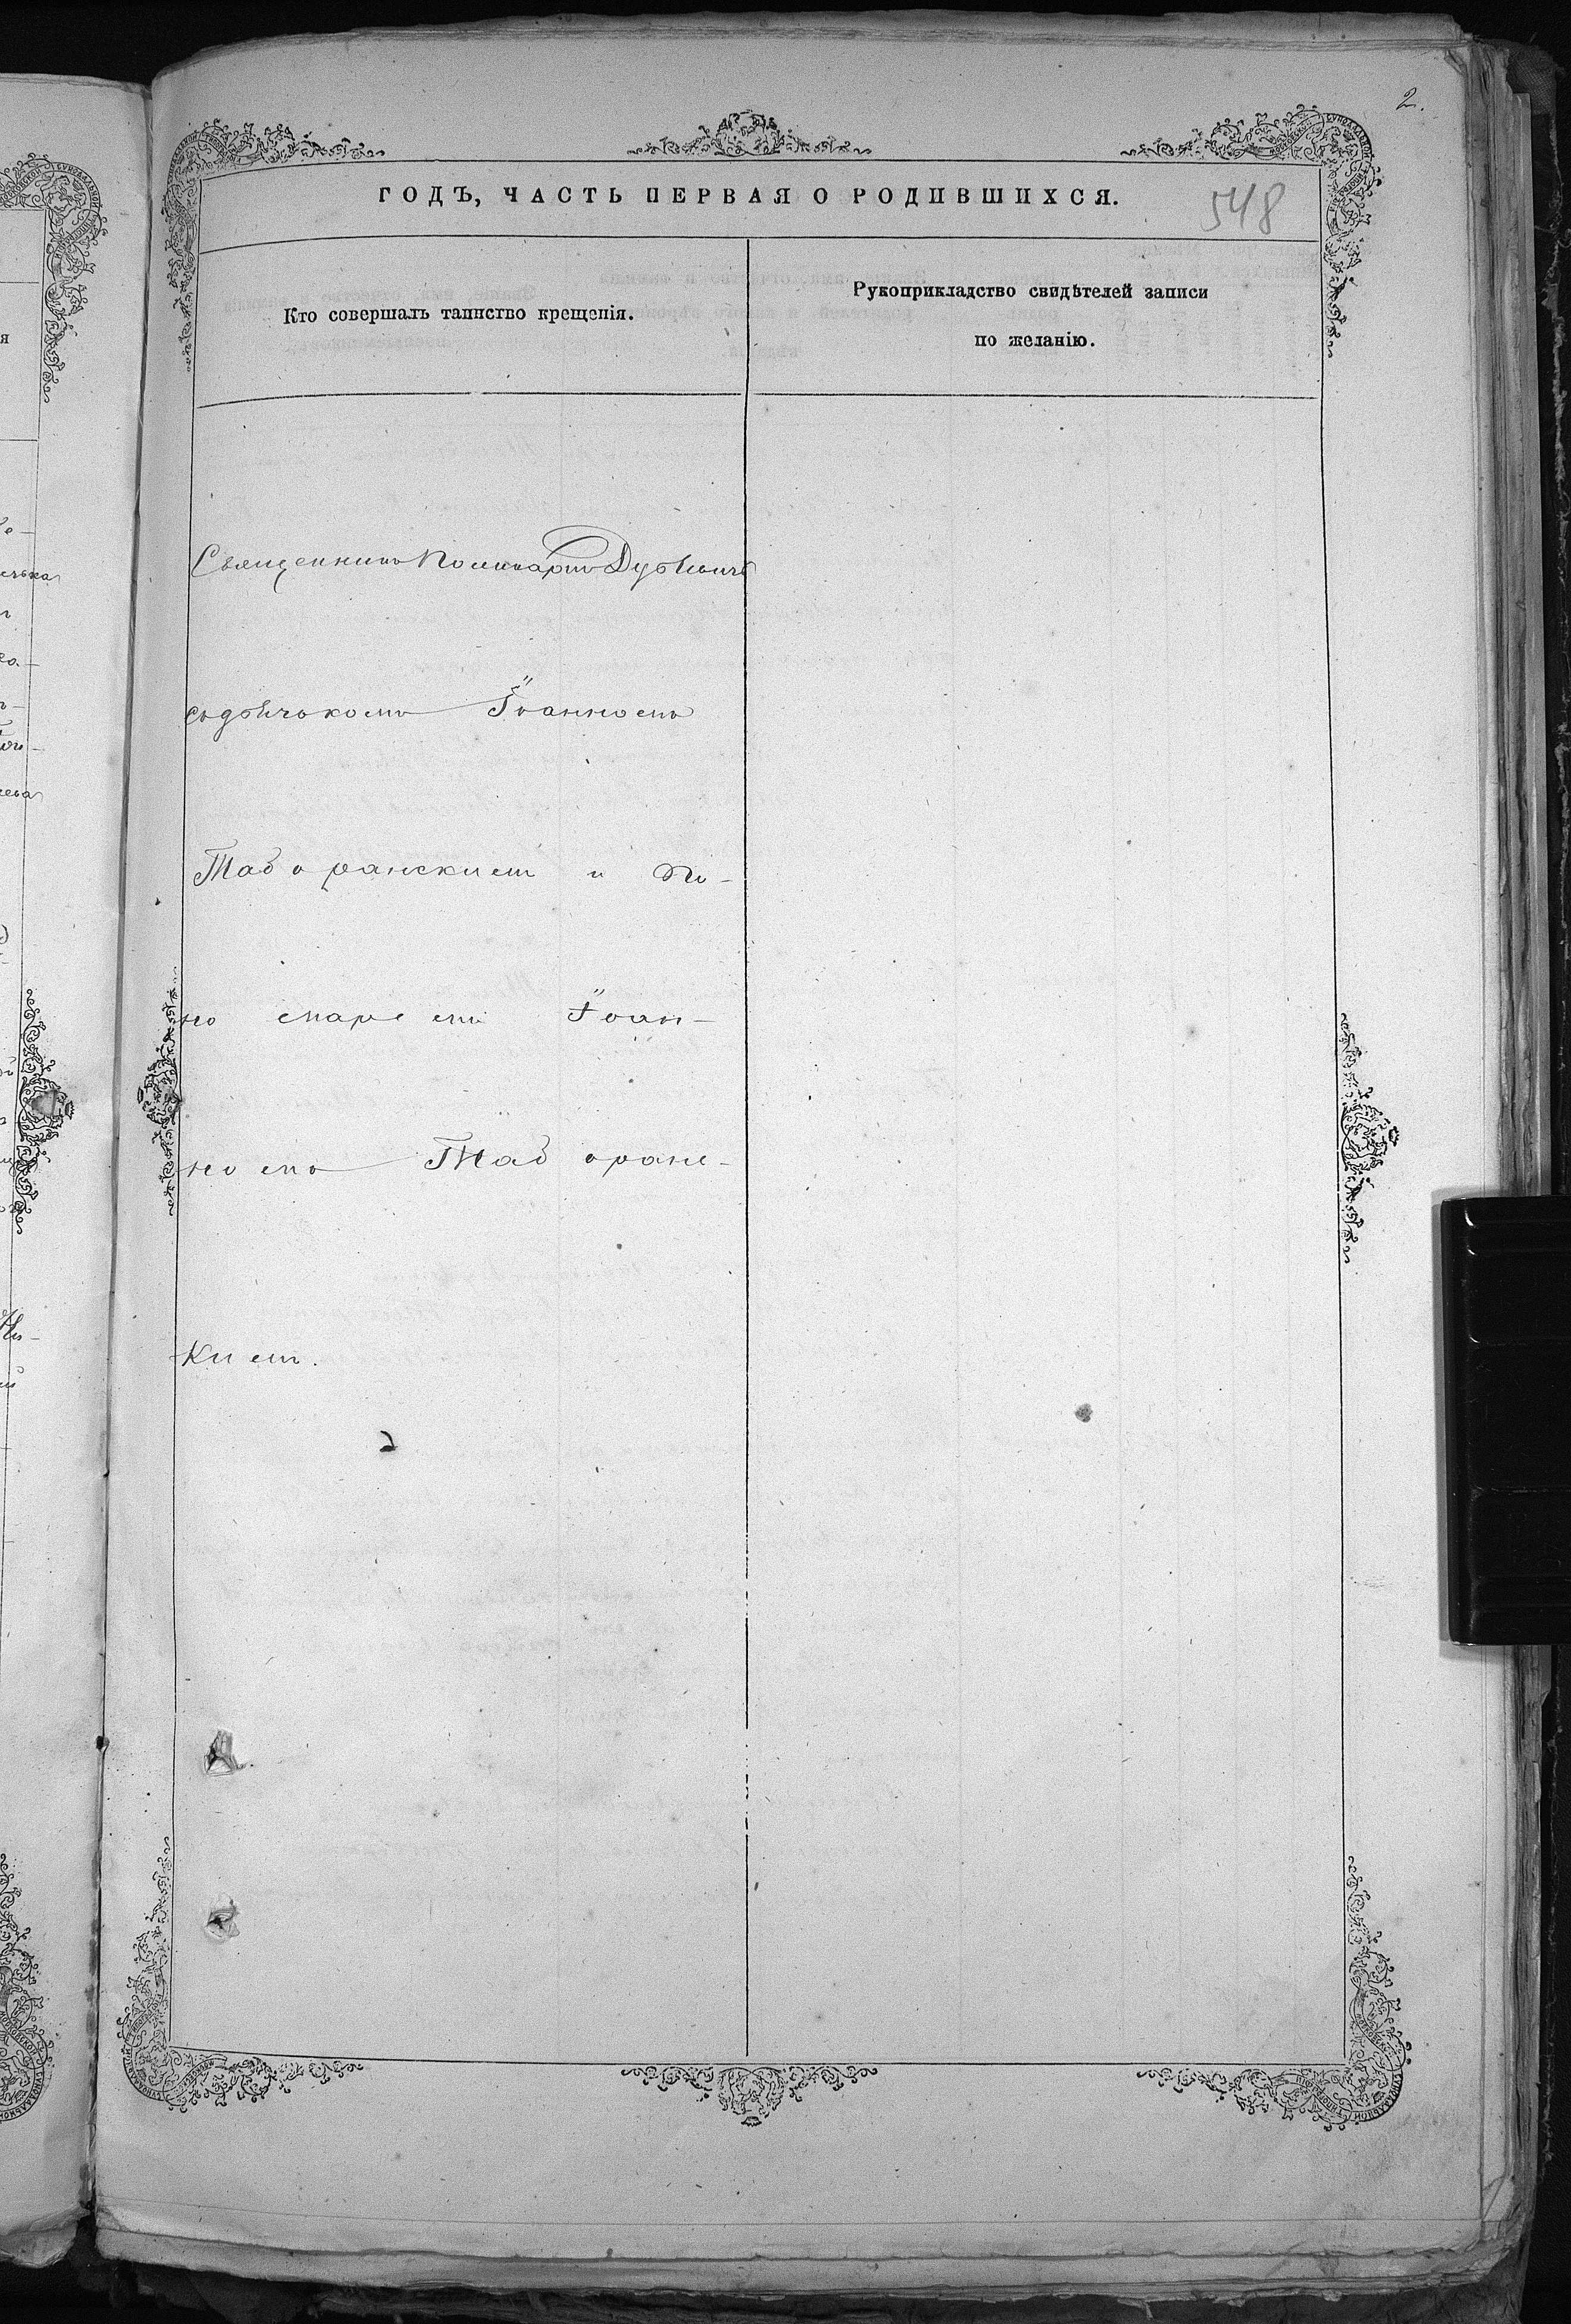 2.
ГОДЪ, ЧАСТЬ ПЕРВАЯ О РОДИВШИХСЯ.
548
Кто совершалъ таинство крещенія.
Рукоприкладство свидѣтелей записи
по желанію.
Священникъ Поликарпъ
съ дьячкомъ Іоанномъ
Таборанскимъ и По-
но маремъ Іоан-
номъ Таборанс-
кимъ.